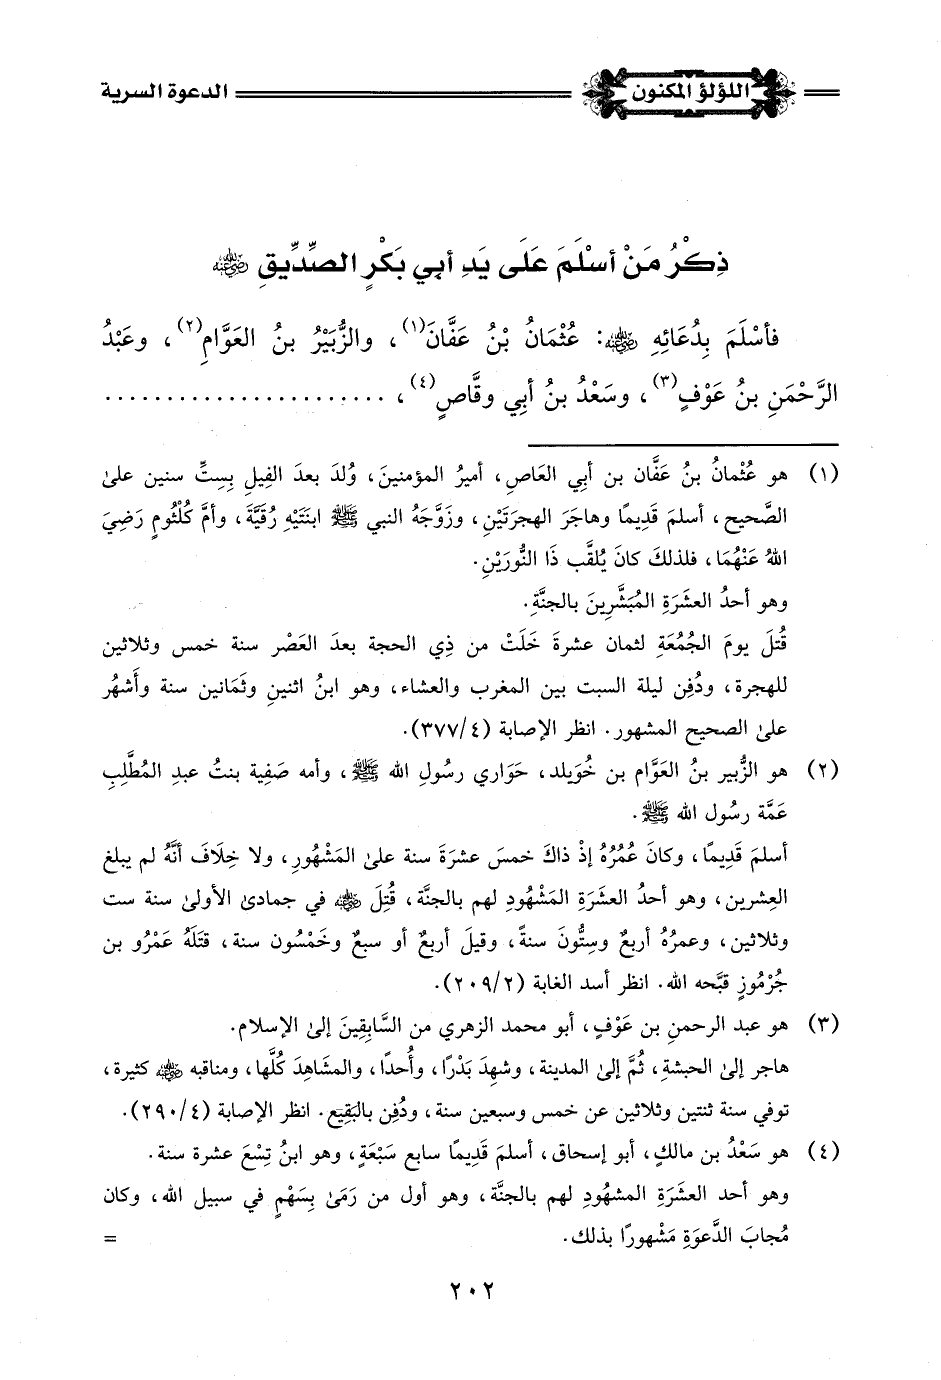 اللؤلؤ المكنون
الدعوة السرية
ذِكْرُ مَنْ أَسْلَمَ عَلَى يَدِ أَبِي بَكْرٍ الصِّدِّيقِ ﵁
فأَسْلَمَ بِدُعَائِهِ ﵁: عُثْمَانُ بْنُ عَفَّانَ(١)، والزُّبَيْرُ بنُ العَوَّامِ(٢)، وعَبْدُ
الرَّحْمَنِ بنُ عَوْفٍ(٣)، وسَعْدُ بنُ أَبِي وقَّاصٍ(٤)، .......................
(١) هو عُثْمانُ بنُ عَفَّان بن أبِي العَاصِ، أميرُ المؤمنينَ، وُلدَ بعدَ الفِيلِ بِستِّ سنين علىٰ
الصَّحيح، أسلمَ قَديمًا وهاجَرَ الهجرَتَيْنِ، وزَوَّجَهُ النبي ﷺ ابنَتَيْهِ رُقيَّةَ، وأمَّ كُلْثُومٍ رَضِيَ
اللهُ عَنْهُمَا، فلذلكَ كانَ يُلقَّب ذَا النُّورَيْنِ.
وهو أحدُ العشَرَةِ المُبَشَّرِينَ بالجنَّةِ.
قُتلَ يومَ الجُمُعَةِ لثمان عشرةَ خَلَتْ من ذِي الحجة بعدَ العَصْر سنة خمس وثلاثين
للهجرة، ودُفِن ليلة السبت بين المغرب والعشاء، وهو ابنُ اثنينِ وثَمَانين سنة وأَشهُر
علىٰ الصحيح المشهور. انظر الإصابة (٣٧٧/٤).
(٢) هو الزُّبير بنُ العَوَّام بن خُوَيلد، حَوَاري رسُولِ الله ﷺ، وأمه صَفِية بنتُ عبدِ المُطَّلِبِ
عَمَّة رسُول الله ﷺ.
أسلمَ قَديمًا، وكانَ عُمُرُهُ إذْ ذاكَ خمسَ عشرَةَ سنة علىٰ المَشْهُورِ، ولا خِلَافَ أنَّهُ لم يبلغ
العِشرين، وهو أحدُ العشَرَةِ المَشْهُودِ لهم بالجنَّة، قُتِلَ ﵁ في جمادىٰ الأولىٰ سنة ست
وثلاثين، وعمرُهُ أربعٌ وسِتُّونَ سنةً، وقيلَ أربعٌ أو سبعٌ وخَمْسُون سنة، قتلَهُ عَمْرُو بن
جُرْمُوزٍ قبَّحه الله. انظر أسد الغابة (٢٠٩/٢).
(٣) هو عبد الرحمنِ بن عَوْفٍ، أبو محمد الزهري من السَّابِقِينَ إلىٰ الإسلام.
هاجر إلىٰ الحبشةِ، ثُمَّ إلىٰ المدينة، وشهِدَ بَدْرًا، وأُحدًا، والمشَاهِدَ كُلَّها، ومناقبه ﵁ كثيرة،
توفي سنة ثنتين وثلاثين عن خمس وسبعين سنة، ودُفِن بالبَقِيع. انظر الإصابة (٢٩٠/٤).
(٤) هو سَعْدُ بن مالكٍ، أبو إسحاق، أسلمَ قَديمًا سابع سَبْعَةٍ، وهو ابنُ تِسْعَ عشرة سنة.
وهو أحد العشَرَةِ المشهُودِ لهم بالجنَّة، وهو أول من رَمَىٰ بِسَهْمٍ في سبيل الله، وكان
مُجابَ الدَّعوَةِ مَشْهورًا بذلك. =
٢٠٢